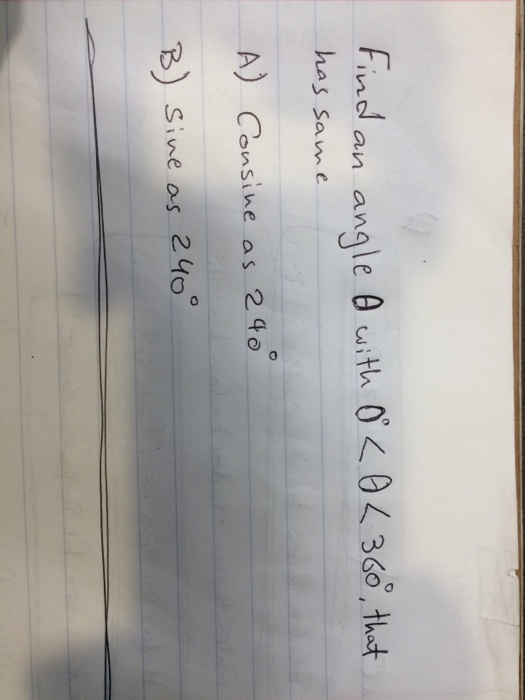 Find an angle θ with 0° < θ < 360°, that
has same
A) Consine as 240°
B) Sine as 240°